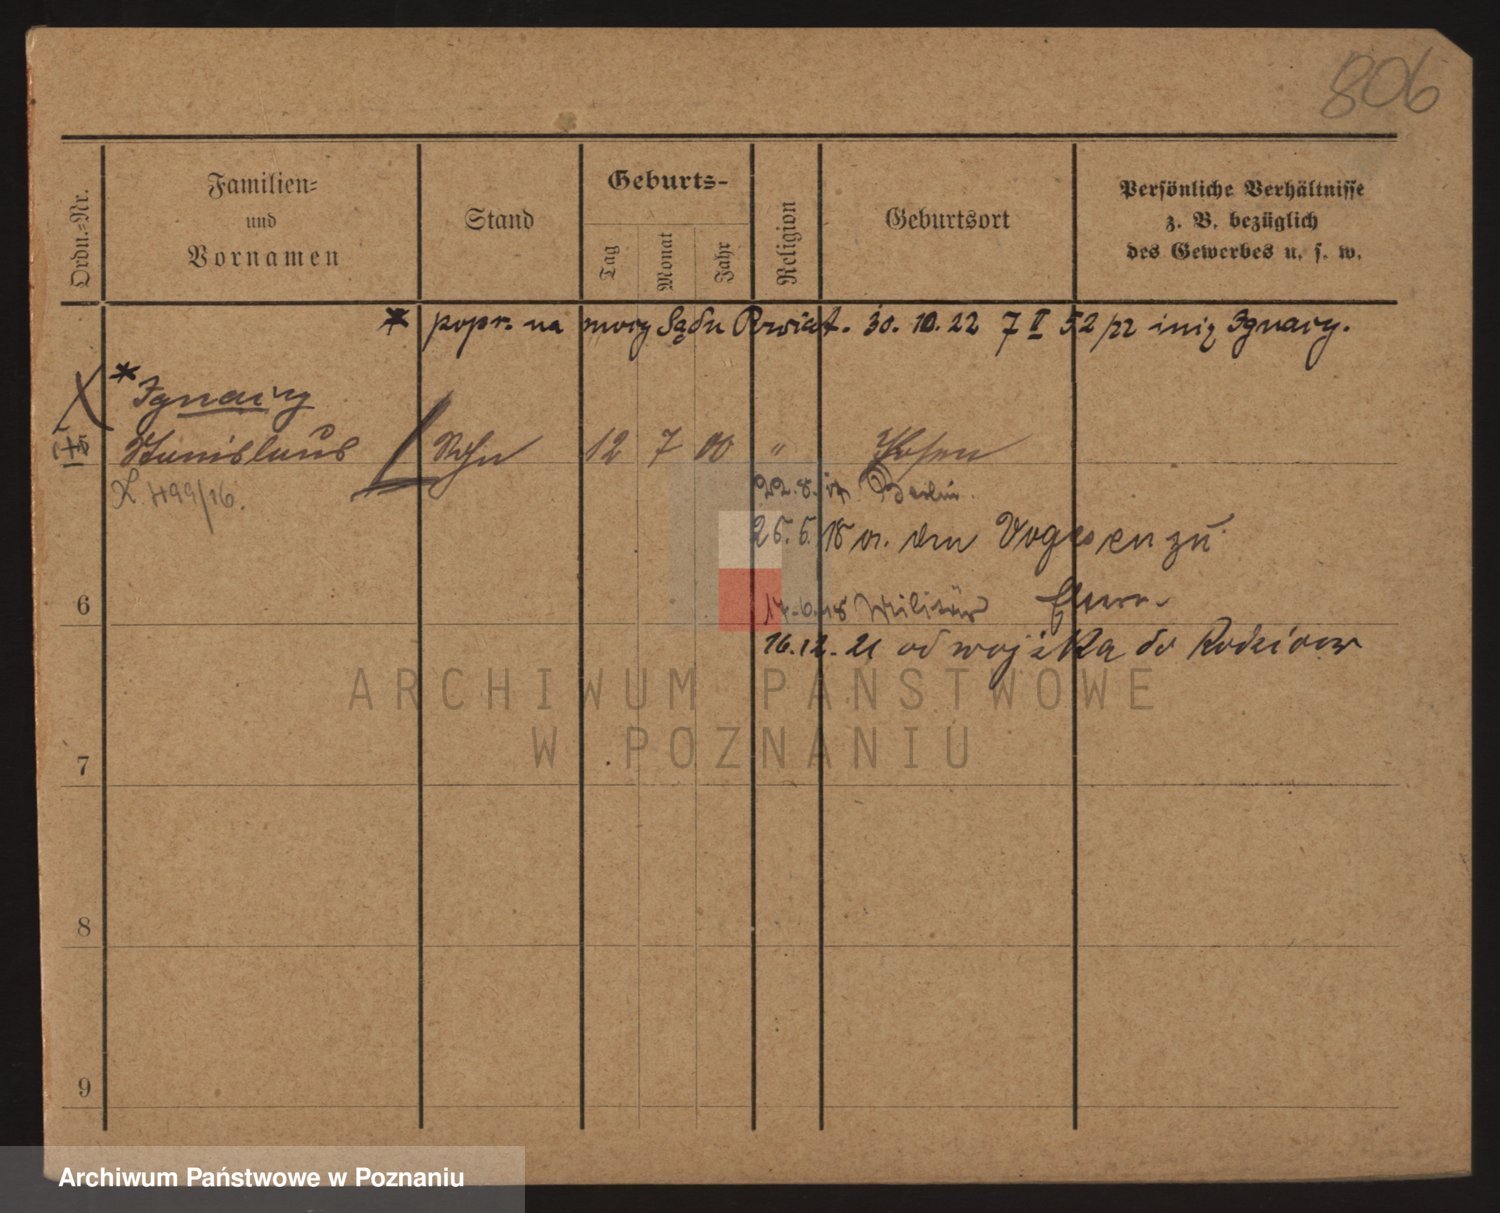 806
Ordn.-Nr.
Familien-
und
Vornamen
Stand
Geburts-
Tag
Monat
Jahr
Religion
Geburtsort
Persönliche Verhältnisse
z. B. bezüglich
des Gewerbes u. s. w.
* popr. na mocy Sądu Powiat. 30. 10. 22 7 II 52/22 imię Ignacy.
* Ignacy
5 Stanislaus Sohn 12 7 00 " Posen
22. 8. 17 Berlin.
L. 499/16.
25. 5. 18 v. den Vogesen zü
6
17. 6. 18 Militär
16. 12. 21 od wojska do Rodziców
ARCHIWUM PAŃSTWOWE
W POZNANIU
7
8
9
Archiwum Państwowe w Poznaniu